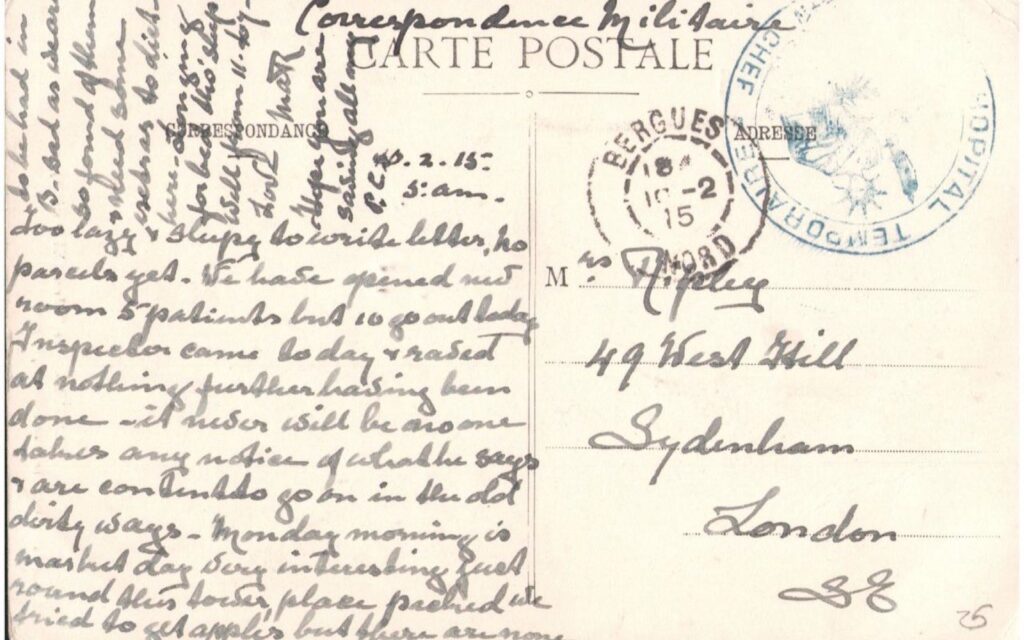 Correspondence Militaire
CARTE POSTALE
CORRESPONDANCE
ADRESSE
.2.15
5 am.
Too lazy & sleepy to write letter, no
parcels yet. We have opened new
room 5 patients but 10 go out today
Inspector came today & raved
at nothing further having been
done - it never will be as no one
takes any notice of what he says
& are content to go on in the old
dirty ways - Monday morning is
market day very interesting just
round this tower, place packed we
tried to get apples but there are none
to be had in
B. bad as
so fond of them
extras to dish
here - longing
for bed tho' slep
well from 11. to 7.
Love
Hope you are
saving all my
P.C.s
BERGUES
18
10 -2
15
NORD
HOPITAL TEMPORAIRE
CHEF
Mrs Ripley
49 West Hill
Sydenham
London
SE
25